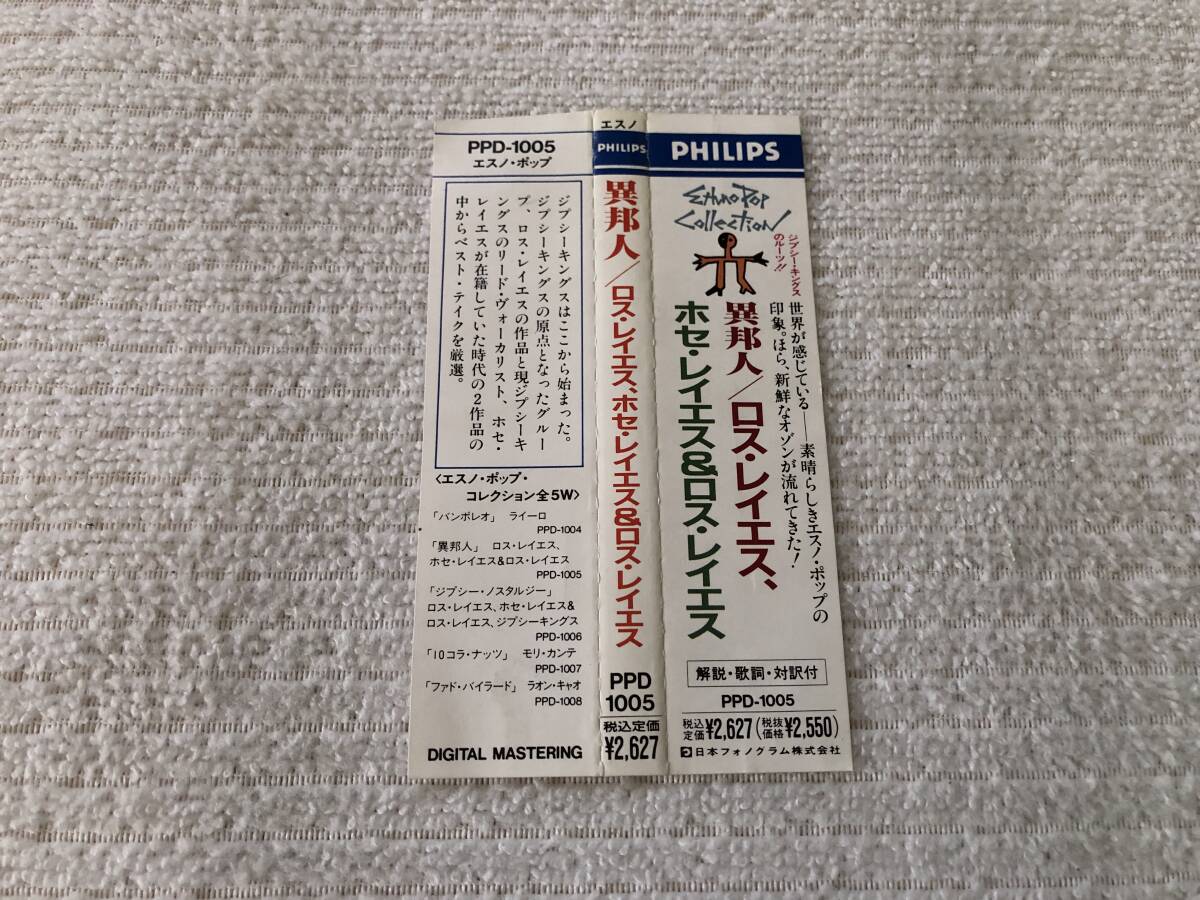 PPD-1005
エスノ・ポップ
ジプシーキングスはここから始まった。
ジプシーキングスの原点となったグルー
プ、ロス・レイエスの作品と現ジプシーキ
ングスのリード・ヴォーカリスト、ホセ・
レイエスが在籍していた時代の2作品の
中からベスト・テイクを厳選。
〈エスノ・ポップ・
コレクション全5W〉
「バンボレオ」 ライーロ
PPD-1004
「異邦人」 ロス・レイエス、
ホセ・レイエス&ロス・レイエス
PPD-1005
「ジプシー・ノスタルジー」
ロス・レイエス、ホセ・レイエス&
ロス・レイエス、ジプシーキングス
PPD-1006
「10コラ・ナッツ」 モリ・カンテ
PPD-1007
「ファド・バイラード」 ラオン・キャオ
PPD-1008
DIGITAL MASTERING
エスノ
PHILIPS
異邦人/ロス・レイエス、ホセ・レイエス&ロス・レイエス
PPD
1005
税込定価
¥2,627
PHILIPS
Ethno Pop
Collection
ジプシー・キングス
のルーツ!!
世界が感じている——素晴らしきエスノ・ポップの
印象。ほら、新鮮なオゾンが流れてきた!
異邦人/ロス・レイエス、
ホセ・レイエス&ロス・レイエス
解説・歌詞・対訳付
PPD-1005
税込定価¥2,627(税抜価格¥2,550)
日本フォノグラム株式会社